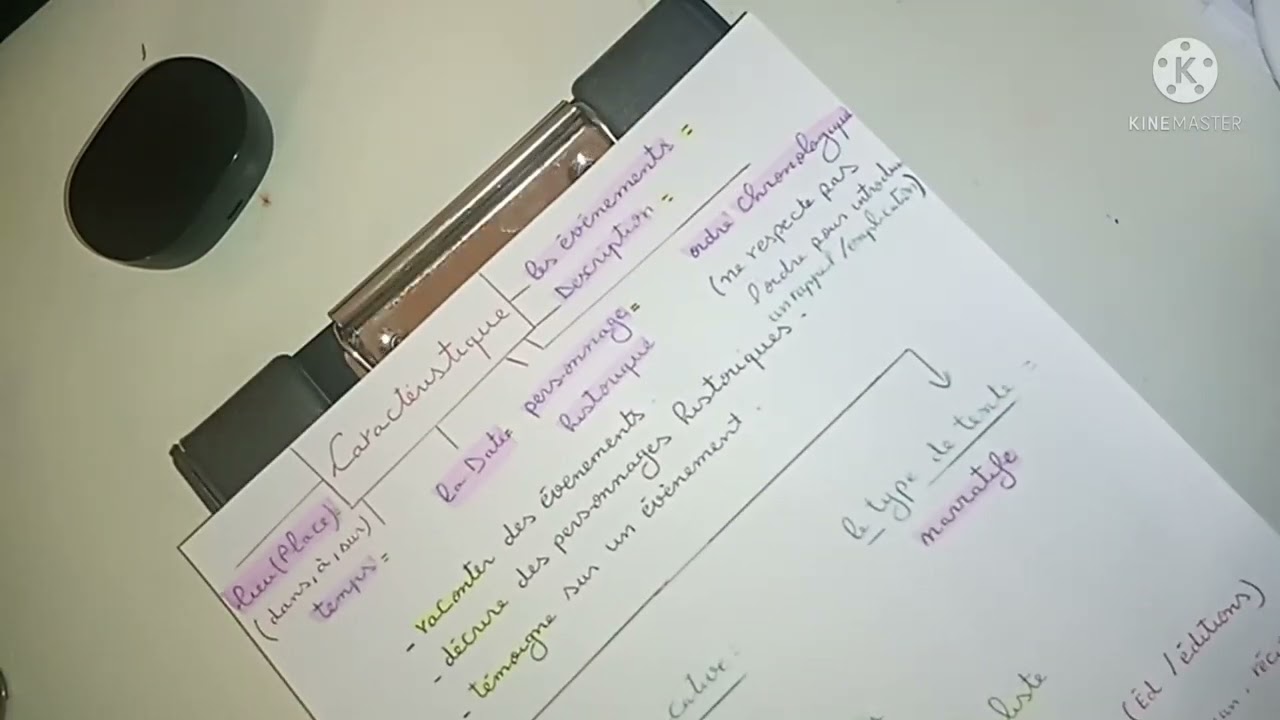 Caractéristique
les événements =
Description =
ordre chronologique
(ne respecte pas
l'ordre pour introdui
un rappel / explication)
personnage =
historique
la Date =
lieu (Place) =
(dans, à, sur)
temps =
- raconter des événements.
- décrire des personnages historiques.
- témoigne sur un événement.
le type de texte =
narratife
cative :
liste
(Éd / éditions)
KINEMASTER